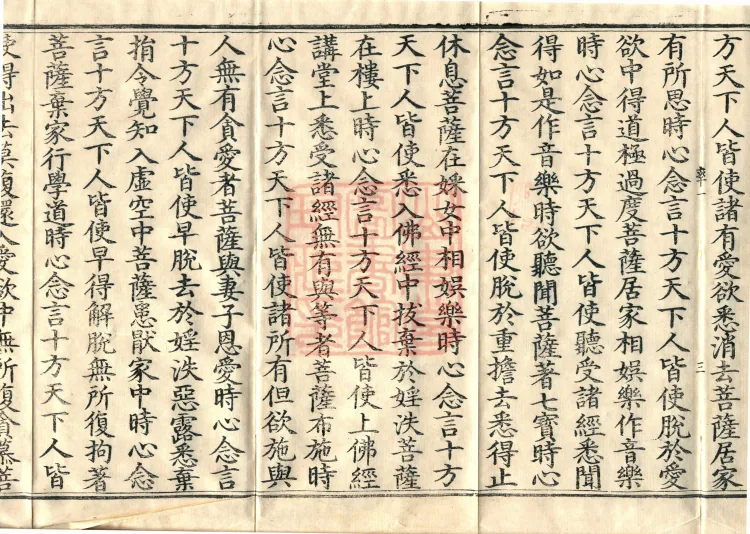 方天下人皆使諸有愛欲悉消去菩薩居家
率一 三
有所思時心念言十方天下人皆使脫於愛
欲中得道極過度菩薩居家相娛樂作音樂
時心念言十方天下人皆使聽受諸經悉聞
得如是作音樂時欲聽聞菩薩著七寶時心
念言十方天下人皆使脫於重擔去悉得止
休息菩薩在婇女中相娛樂時心念言十方
天下人皆使悉入佛經中拔棄於婬泆菩薩
在樓上時心念言十方天下人皆使上佛經
講堂上悉受諸經無有與等者菩薩布施時
心念言十方天下人皆使諸所有但欲施與
人無有貪愛者菩薩與妻子恩愛時心念言
十方天下人皆使早脫去於婬泆惡露悉棄
捐令覺知入虛空中菩薩患厭家中時心念
言十方天下人皆使早得解脫無所復拘著
菩薩棄家行學道時心念言十方天下人皆
使得出去莫復還入愛欲中無所復貪慕菩